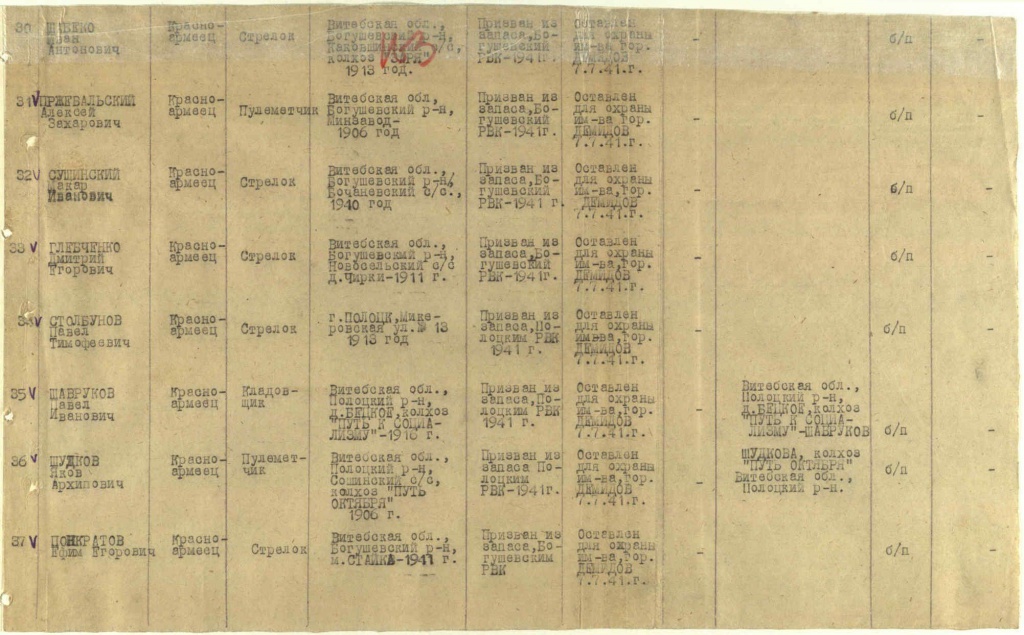 30 ШАБЕКО Иван Антонович Красно-армеец Стрелок Витебская обл., Богушевский р-н, с/с, колхоз "ЗАРЯ" 1913 год. Призван из запаса, Богушевский РВК-1941г. Оставлен для охраны им-ва гор. ДЕМИДОВ 7.7.41.г. б/п
113
31 V ПРЖЕВАЛЬСКИЙ Алексей Захарович Красно-армеец Пулеметчик Витебская обл, Богушевский р-н, Минзавод- 1906 год Призван из запаса,Бо-гушевский РВК-1941г. Оставлен для охраны им-ва,гор. ДЕМИДОВ 7.7.41.г. - б/п -
32 V СУЩИНСКИЙ Макар Иванович Красно-армеец Стрелок Витебская обл., Богушевский р-н, Бочаневский с/с., 1940 год Призван из запаса,Бо-гушевский РВК-1941 г. Оставлен для охраны им-ва,гор. ДЕМИДОВ 7.7.41.г. - б/п -
33 V ГЛЕБЧЕНКО Дмитрий Егорович Красно-армеец Стрелок Витебская обл., Богушевский р-н, Новосельский с/с д.Чирки-1911 г. Призван из запаса,Бо-гушевский РВК-1941г. Оставлен для охраны им-ва,гор. ДЕМИДОВ 7.7.41.г. - б/п -
34 V СТОЛБУНОВ Павел Тимофеевич Красно-армеец Стрелок г.ПОЛОЦК,Мике-ровская ул.№ 13 1913 год Призван из запаса,По-лоцким РВК 1941 г. Оставлен для охраны им-ва,гор. ДЕМИДОВ 7.7.41.г. - б/п -
35 V ШАВРУКОВ Павел Иванович Красно-армеец Кладов-щик Витебская обл., Полоцкий р-н, д.БЕЦКОЕ,колхоз "ПУТЬ К СОЦИА-ЛИЗМУ"-1916 г. Призван из запаса,По-лоцким РВК 1941 г. Оставлен для охраны им-ва,гор. ДЕМИДОВ 7.7.41.г. - Витебская обл., Полоцкий р-н, д.БЕЦКОЕ,колхоз "ПУТЬ К СОЦИА-ЛИЗМУ"-ШАВРУКОВ б/п -
36 V ШУДКОВ Яков Архипович Красно-армеец Пулемет-чик Витебская обл., Полоцкий р-н, Сошинский с/с, колхоз "ПУТЬ ОКТЯБРЯ" 1906 г. Призван из запаса По-лоцким РВК-1941г. Оставлен для охраны им-ва,гор. ДЕМИДОВ 7.7.41.г. - ШУДКОВА, колхоз "ПУТЬ ОКТЯБРЯ" Витебская обл., Полоцкий р-н. б/п -
37 V ПОНКРАТОВ Ефим Егорович Красно-армеец Стрелок Витебская обл., Богушевский р-н, м.СТАЙКА-1911 г. Призван из запаса,Бо-гушевским РВК Оставлен для охраны им-ва,гор. ДЕМИДОВ 7.7.41.г. - б/п -